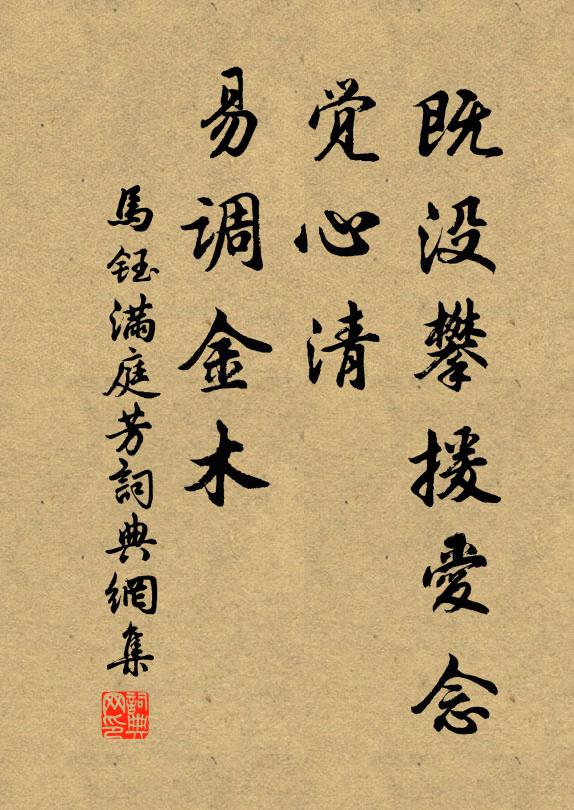 既没攀援爱念
觉心清
易调金木
馬鈺滿庭芳詞典網集
詞典网印